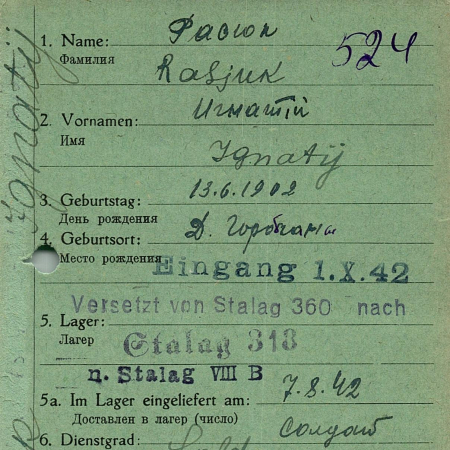 1. Name: Расюк
Фамилия
524
Rasjuk
2. Vornamen: Игнатій
Имя
Ignatij
3. Geburtstag: 13.6.1902
День рождения
4. Geburtsort: Д.
Место рождения
Eingang 1.X.42
Versetzt von Stalag 360 nach
5. Lager:
Лагер
Stalag 318
n. Stalag VIII B
5a. Im Lager eingeliefert am: 7.8.42
Доставлен в лагер (число)
6. Dienstgrad: Солдат
Ignatij